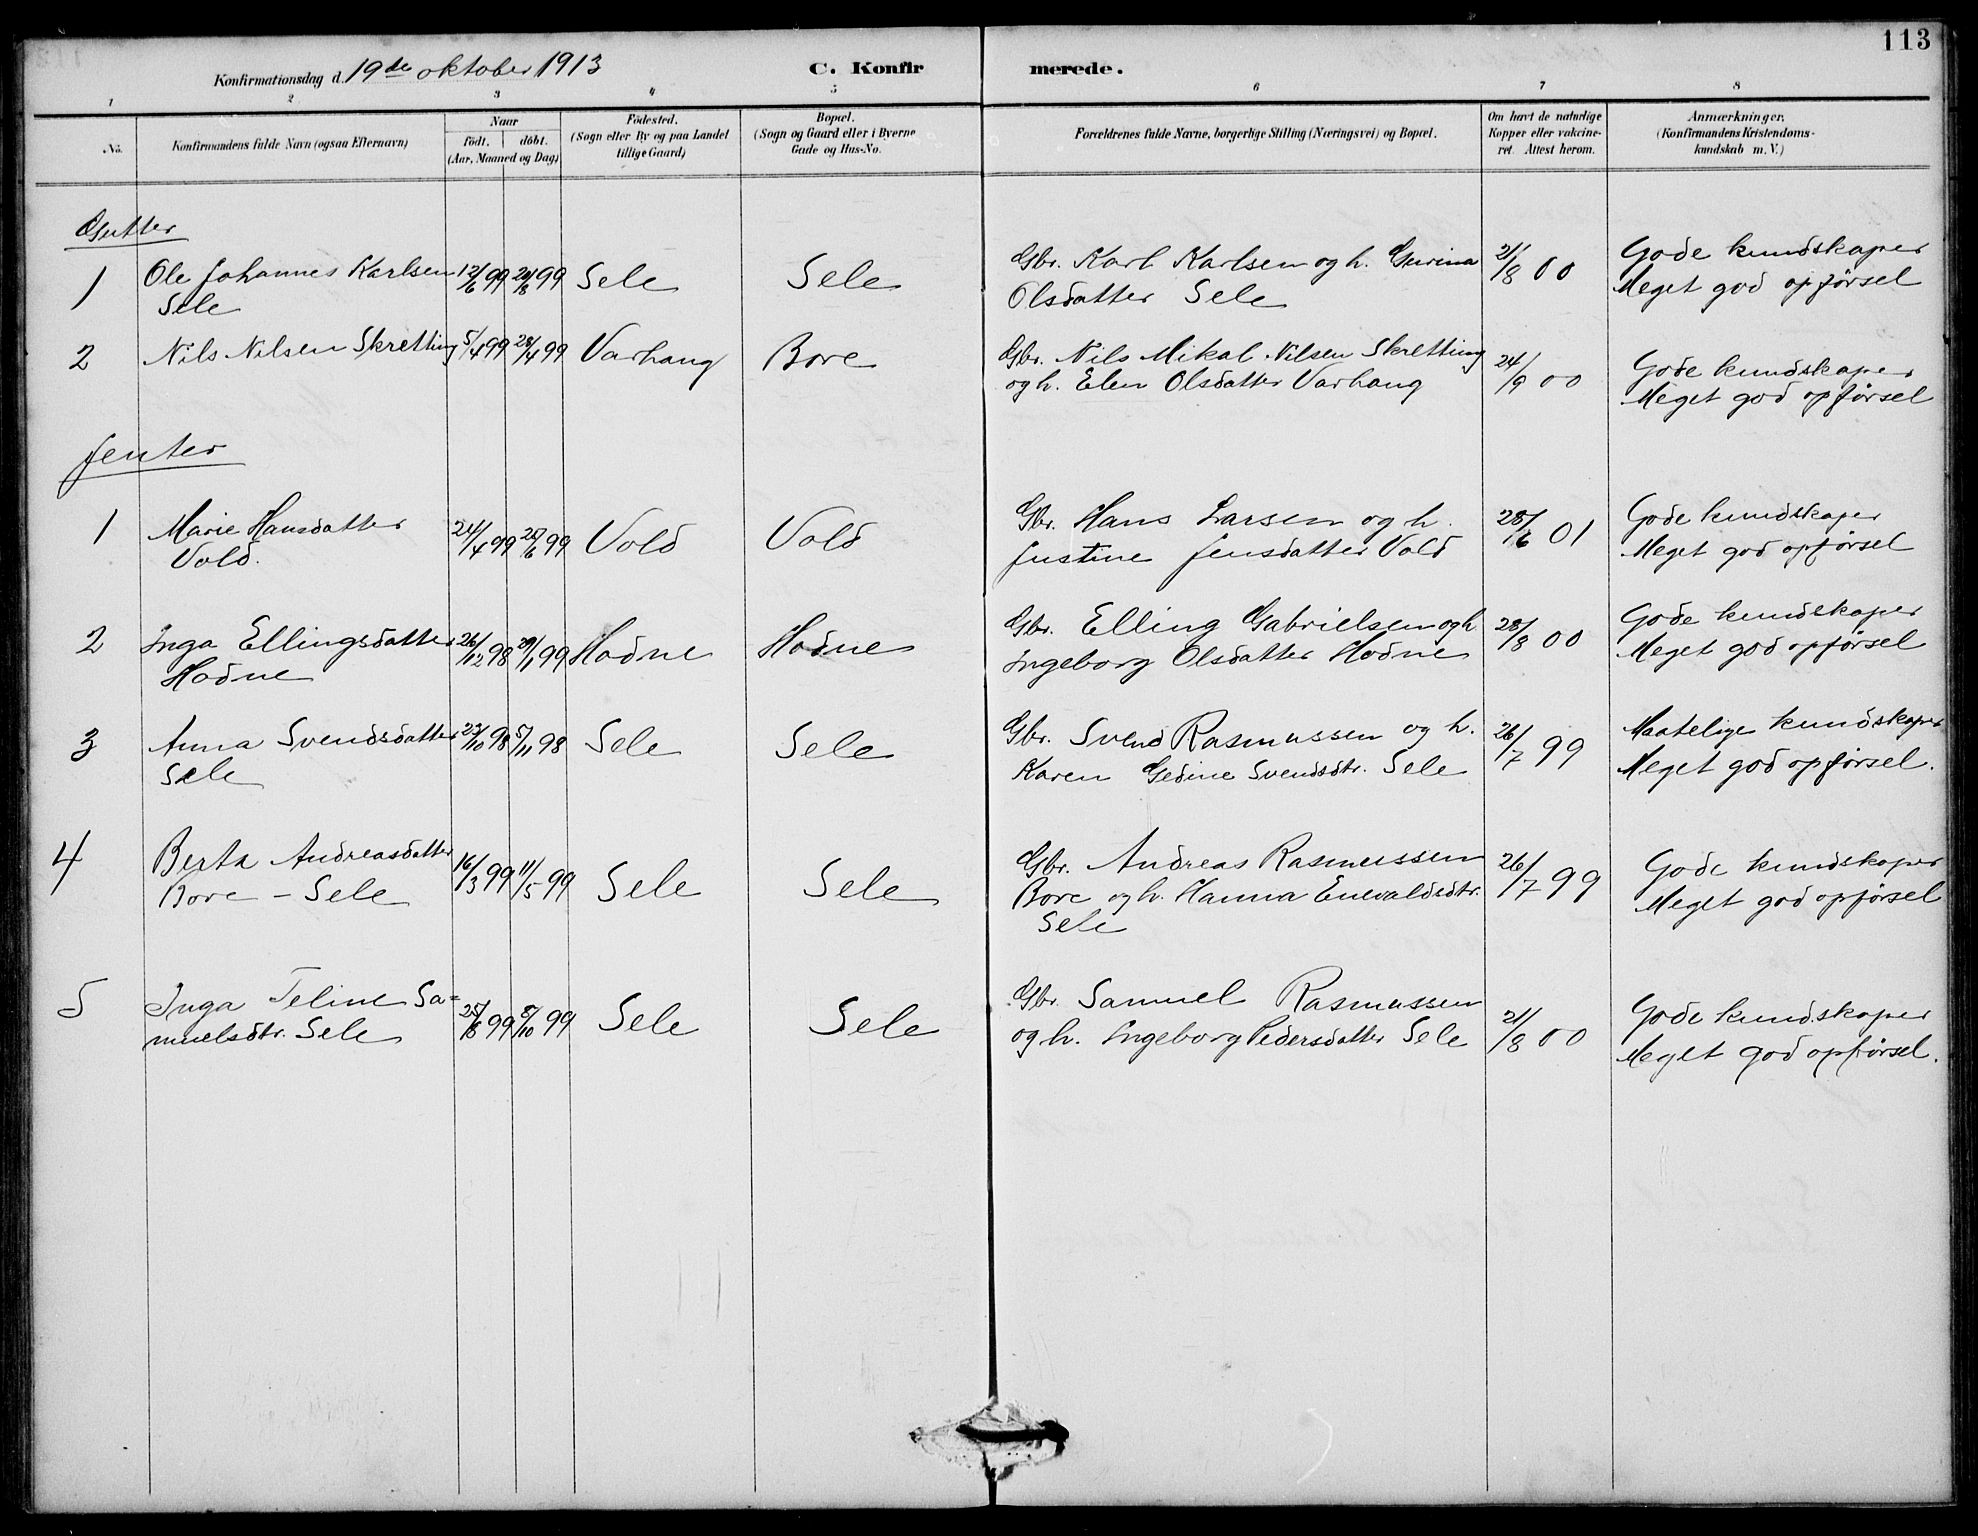 113
Konfirmationsdag d. 19de oktober 1913
C. Konfirmerede.
1 2 3 4 5 6 7 8
No.
Konfirmandens fulde Navn (ogsaa Efternavn)
Naar
født. døbt.
(Aar, Maaned og Dag)
Fødested.
(Sogn eller By og paa Landet
tillige Gaard)
Bopæl.
(Sogn og Gaard eller i Byerne
Gade og Hus-No.
Forældrenes fulde Navne, borgerlige Stilling (Næringsvei) og Bopæl.
Om havt de naturlige
Kopper eller vakcine-
ret. Attest herom.
Anmærkninger.
(Konfirmandens Kristendoms-
kundskab m. V.)
Gutter
1 Ole Johannes Karlsen 12/6 99 20/8 99 Sele Sele Gbr. Karl Karlsen og h. Gurina 21/8 00 Gode kundskaper
Sele Olsdatter Sele Meget god opførsel
2 Nils Nilsen Skretting 5/4 99 23/4 99 Varhaug Bore Gbr. Nils Mikal Nilsen Skretting 24/9 00 Gode kundskaper
og h. Elen Olsdatter Varhaug Meget god opførsel
Jenter
1 Marie Hansdatter 24/4 99 99 Vold Vold Gbr. Hans Larsen og h. 28/6 01 Gode kundskaper
Vold. Justine Jensdatter Vold Meget god opførsel
2 Inga Ellingsdatter 26/12 98 99 Hodne Hodne Gbr. Elling Gabrielsen og h 28/8 00 Gode kundskaper
Hodne Ingeborg Olsdatter Hodne Meget god opførsel
3 Anna Svendsdatter 23/10 98 5/11 98 Sele Sele Gbr. Svend Rasmussen og h. 26/7 99 Maatelige kundskaper
Sele Karen Gedine Svendsdtr. Sele Meget god opførsel.
4 Berta Andreasdatter 16/3 99 11/5 99 Sele Sele Gbr. Andreas Rasmussen 26/7 99 Gode kundskaper
Bore - Sele Bore og h. Hanna Enevaldsdtr. Meget god opførsel
Sele
5 Inga Teline Sa= 25/8 99 8/10 99 Sele Sele Gbr. Samuel Rasmussen 21/8 00 Gode kundskaper
muelsdtr. Sele og h. Ingeborg Pedersdatter Sele Meget god opførsel.